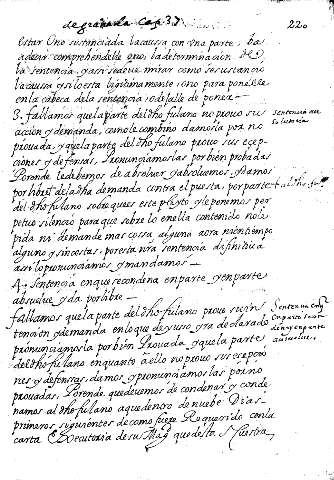 de granada Cap 3.
220
estar Uno sustanciada la causa con una parte
a decir comprehendelle que la determinacion
la sentencia, para se deve mirar como se sustancio
la causa y si lo esta legitimamente, o no para ponelle
en la cabeca de la sentencia, o dejalle de poner
3. fallamos que la parte del dho fulano no provo su
accion y demanda, como le combino damosla por no
provada, y que la parte del dho fulano provo sus ecep-
ciones y defensas, Pronunciamoslas por bien probadas
Porende le debemos de absolver, y absolvemos, y damos
por libre de la dha demanda contra el puesta, por parte
del dho fulano sobre que es este pleyto, y le ponemos per
petuo silencio para que sobre lo en ella contenido no le
pida ni demande mas cosa alguna aora ni en tiempo
alguno y sin costas. por esta nra sentencia difinitiva
assi lo pronunciamos y mandamos
sentencia
4. Sentencia en que se condena en parte, y en parte
absuelve, y da por libre
fallamos que la parte del dho fulano provo su in
tencion, y demanda en lo que de yuso yra declarado
pronunciamosla por bien Provada, y que la parte
del dho fulano en quanto a ello no provo sus ecepcio
nes y defensas, damos, y pronunciamoslas por no
provadas. Porende que devemos de condenar, y conde
namos al dho fulano a que dentro de nuebe Dias
primeros siguientes de como fuere Requerido con la
carta Executoria de su Magd que desta nra
Sentencia
en parte
y en parte
absuelve